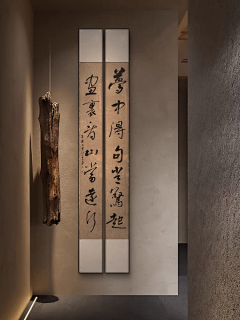 夢中得句驚起
畫裏看山當遠行